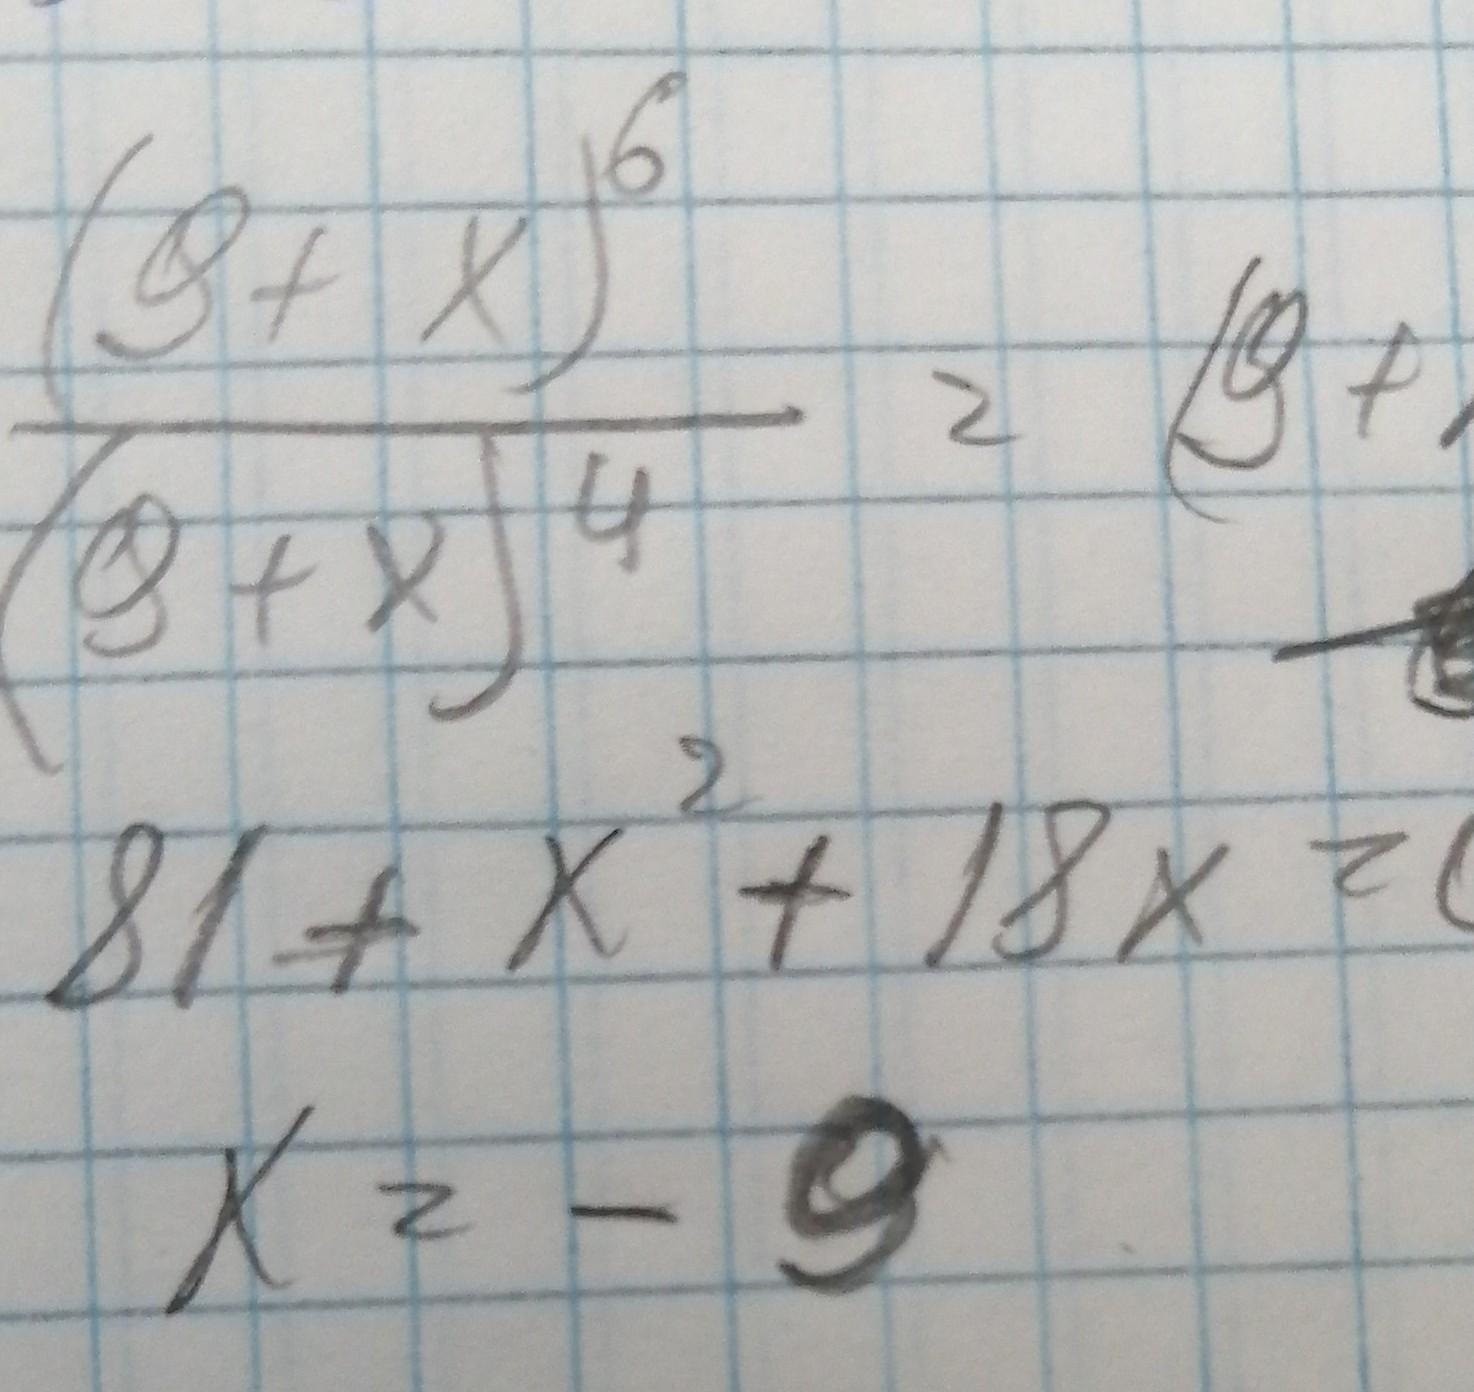 (9 + x)^6
/ (9 + x)^4 = (9 +
81 + x² + 18x =
x = - 9